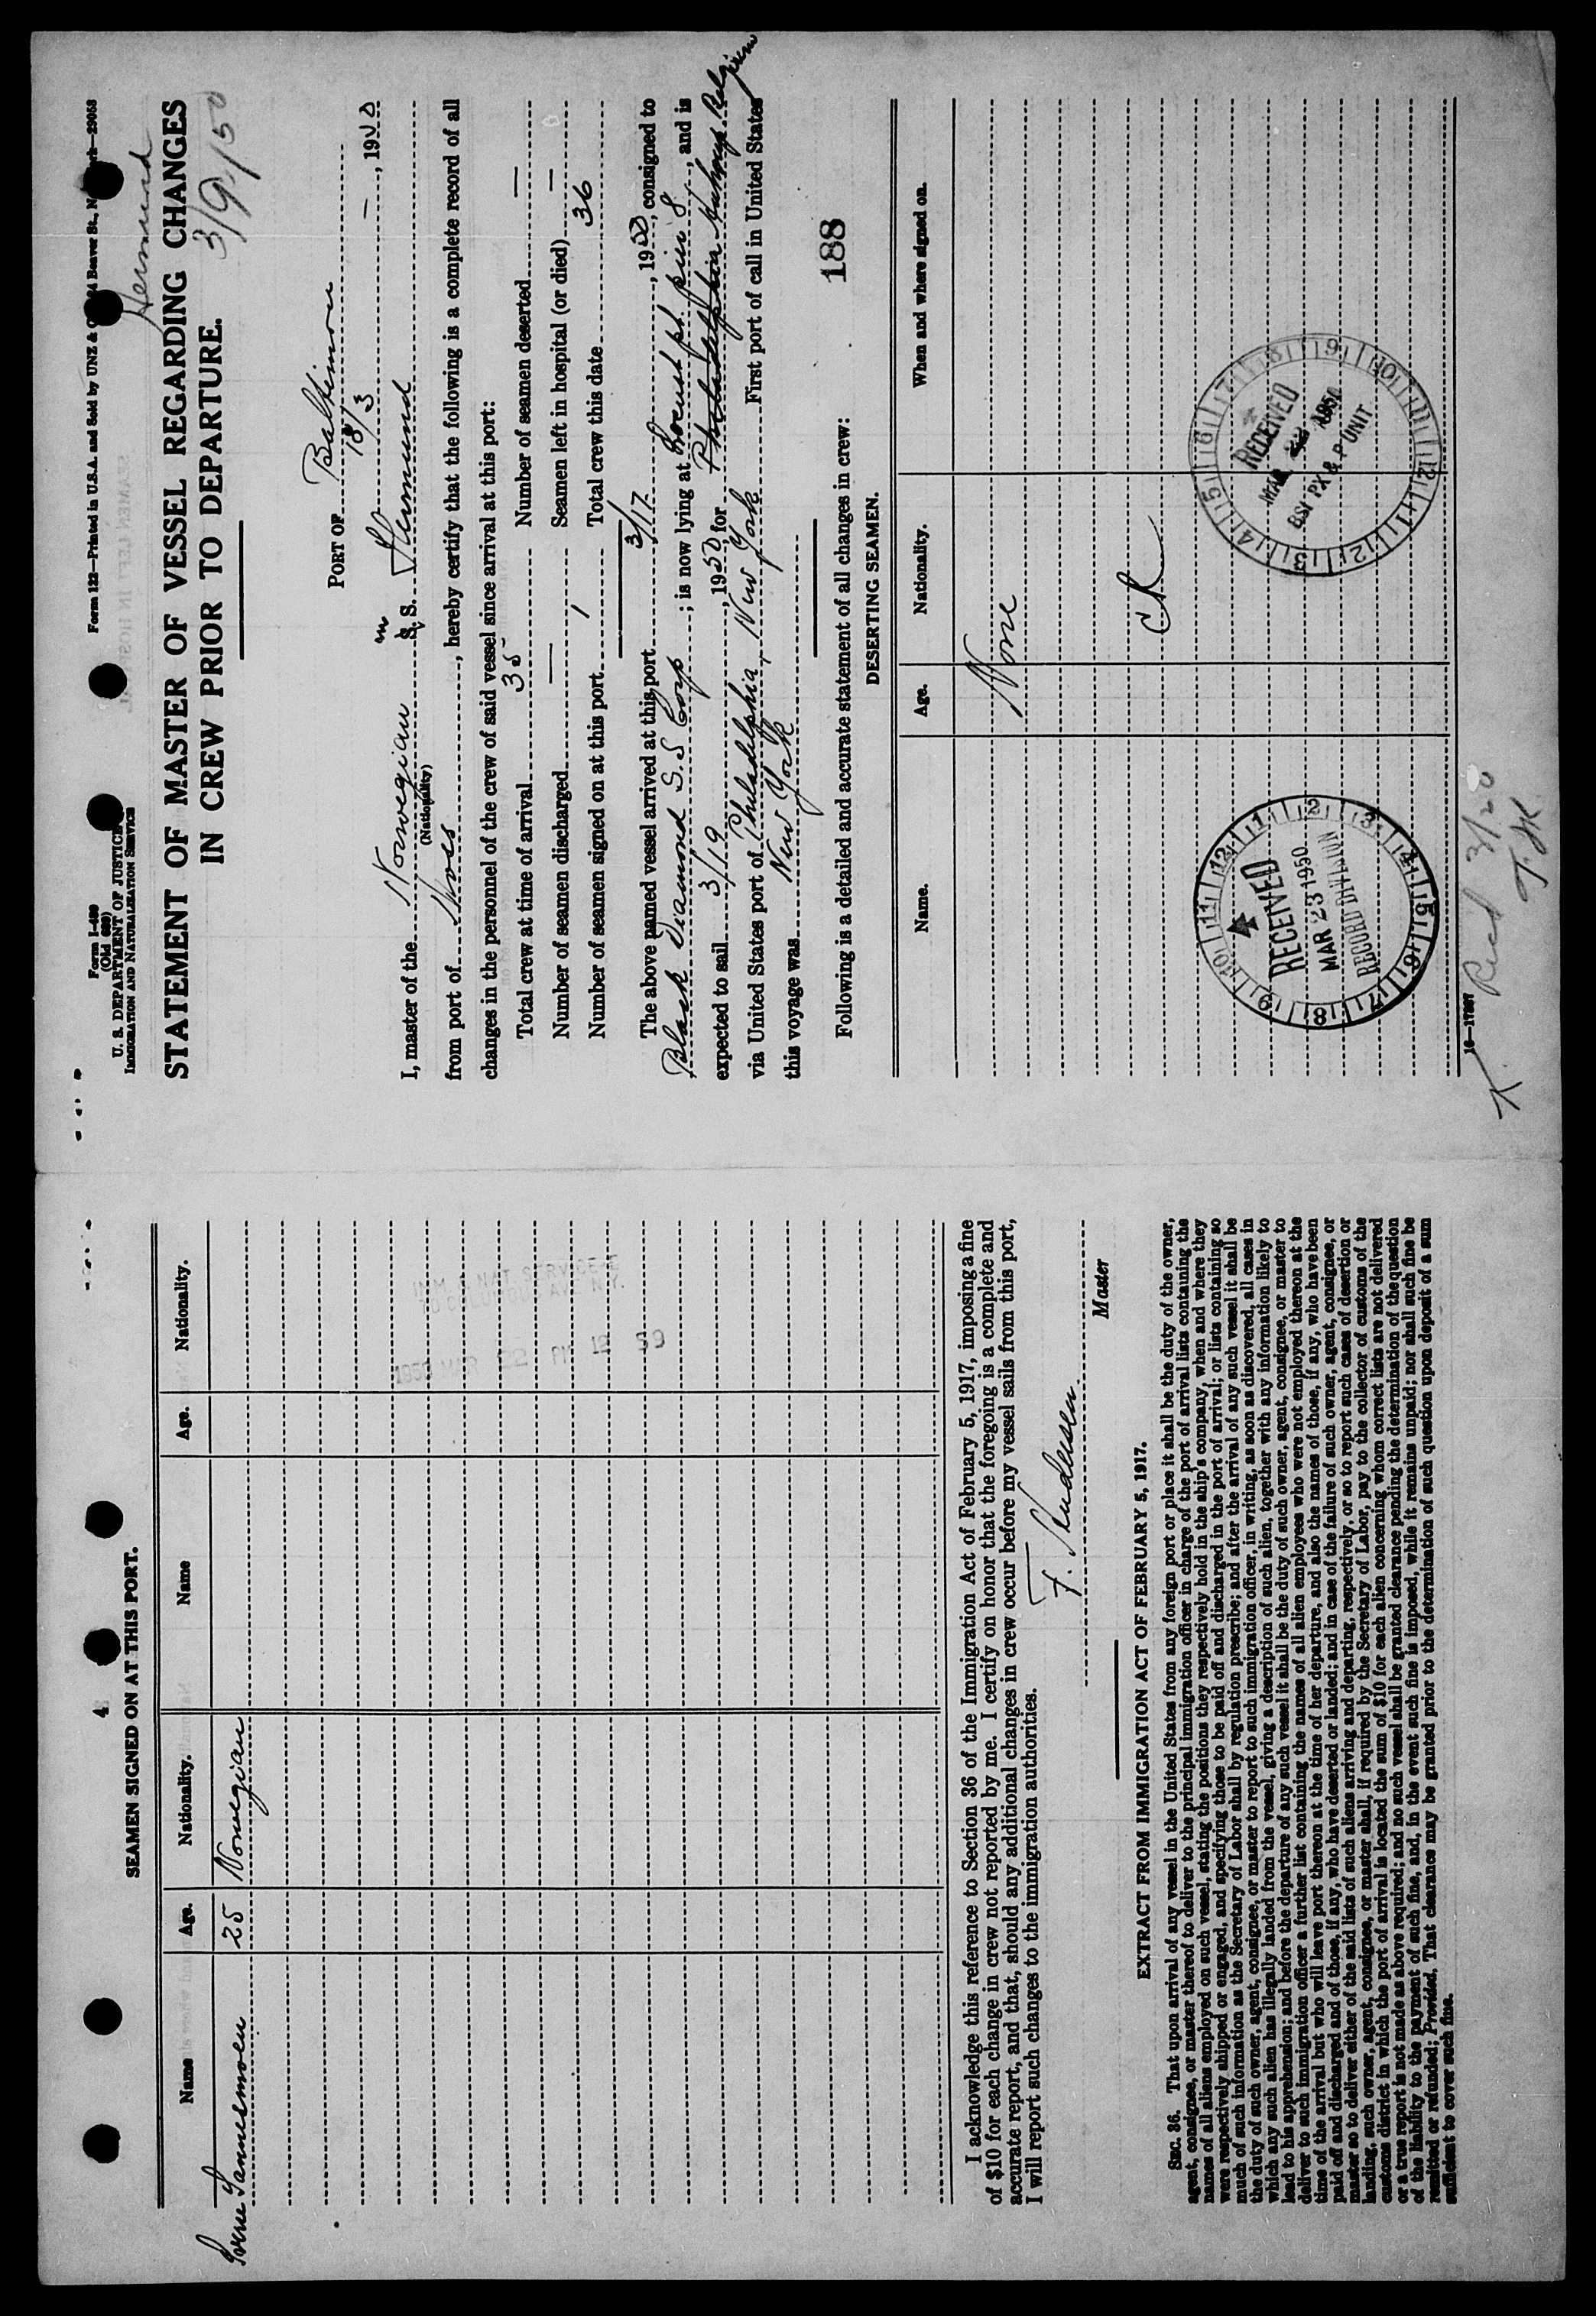 Form I-489
(Old 689)
U. S. DEPARTMENT OF JUSTICE
IMMIGRATION AND NATURALIZATION SERVICE
Form 122—Printed in U.S.A. and Sold by UNZ & Beaver St., —29053
Hermund
STATEMENT OF MASTER OF VESSEL REGARDING CHANGES
IN CREW PRIOR TO DEPARTURE.
3/9/50
PORT OF Baltimore
18/3 — , 1950
I, master of the Norwegian m S. S. Hermund
(Nationality)
from port of Moss , hereby certify that the following is a complete record of all
changes in the personnel of the crew of said vessel since arrival at this port:
Total crew at time of arrival 35 Number of seamen deserted —
Number of seamen discharged — Seamen left in hospital (or died) —
Number of seamen signed on at this port 1 Total crew this date 36
The above named vessel arrived at this port 3/17 , 1950, consigned to
Black Diamond S.S Corp ; is now lying at Locust pt. pier 8 , and is
expected to sail 3/19 , 1950, for Philadelphia Antwerp Belgium
via United States port of Philadelphia, New York First port of call in United States
this voyage was New York
188
Following is a detailed and accurate statement of all changes in crew:
DESERTING SEAMEN.
Name. Age. Nationality. When and where signed on.
None
RECEIVED
MAR 23 1950
RECORD DIVISION
RECEIVED
MAR 1950
BSI PX & P UNIT
16—17897
Recd 3/20
4
SEAMEN SIGNED ON AT THIS PORT.
Name Age. Nationality. Name Age. Nationality.
Sverre Tannesmoen 25 Norwegian
IMM & NAT. SERVICE
70 COLUMBUS AVE N.Y.
1950 MAR 22 PM 12 59
I acknowledge this reference to Section 36 of the Immigration Act of February 5, 1917, imposing a fine
of $10 for each change in crew not reported by me. I certify on honor that the foregoing is a complete and
accurate report, and that, should any additional changes in crew occur before my vessel sails from this port,
I will report such changes to the immigration authorities.
F. Knudsen
Master
EXTRACT FROM IMMIGRATION ACT OF FEBRUARY 5, 1917.
SEC. 36. That upon arrival of any vessel in the United States from any foreign port or place it shall be the duty of the owner,
agent, consignee, or master thereof to deliver to the principal immigration officer in charge of the port of arrival lists containing the
names of all aliens employed on such vessel, stating the positions they respectively hold in the ship's company, when and where they
were respectively shipped or engaged, and specifying those to be paid off and discharged in the port of arrival; or lists containing so
much of such information as the Secretary of Labor shall by regulation prescribe; and after the arrival of any such vessel it shall be
the duty of such owner, agent, consignee, or master to report to such immigration officer, in writing, as soon as discovered, all cases in
which any such alien has illegally landed from the vessel, giving a description of such alien, together with any information likely to
lead to his apprehension; and before the departure of any such vessel it shall be the duty of such owner, agent, consignee, or master to
deliver to such immigration officer a further list containing the names of all alien employees who were not employed thereon at the
time of the arrival but who will leave port thereon at the time of her departure, and also the names of those, if any, who have been
paid off and discharged and of those, if any, who have deserted or landed; and in case of the failure of such owner, agent, consignee, or
master so to deliver either of the said lists of such aliens arriving and departing, respectively, or so to report such cases of desertion or
landing, such owner, agent, consignee, or master shall, if required by the Secretary of Labor, pay to the collector of customs of the
customs district in which the port of arrival is located the sum of $10 for each alien concerning whom correct lists are not delivered
or a true report is not made as above required; and no such vessel shall be granted clearance pending the determination of the question
of the liability to the payment of such fine, and, in the event such fine is imposed, while it remains unpaid; nor shall such fine be
remitted or refunded; Provided, That clearance may be granted prior to the determination of such question upon deposit of a sum
sufficient to cover such fine.